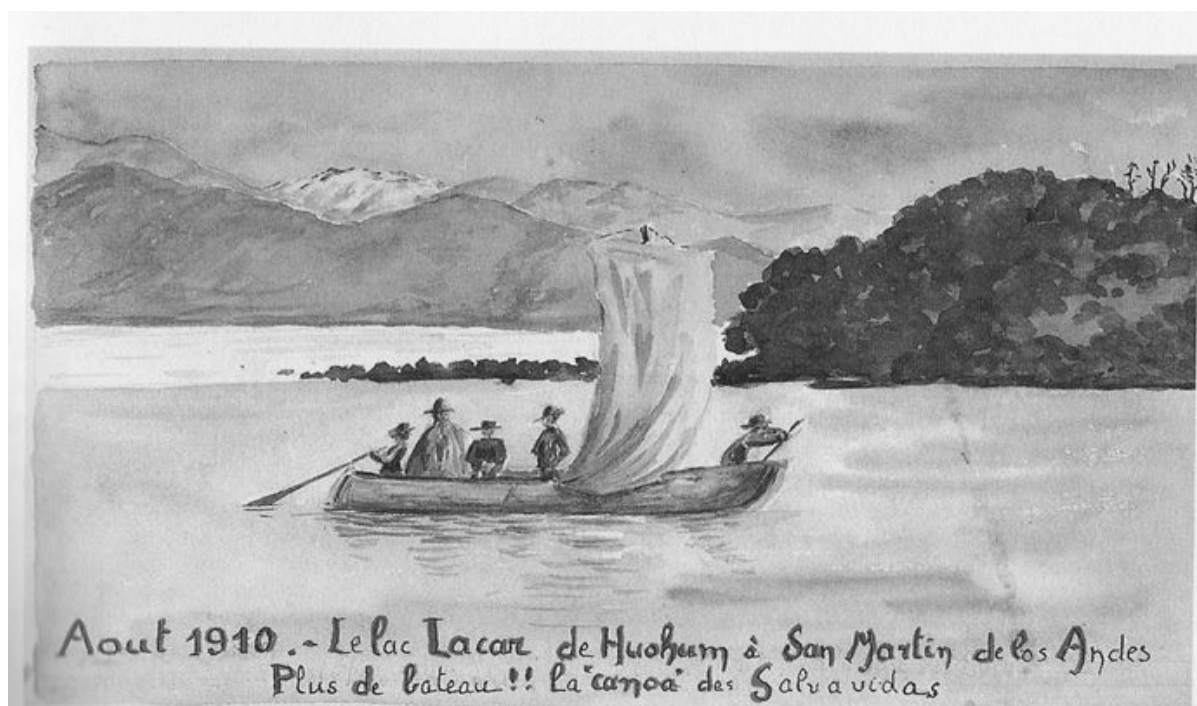 Aout 1910.- Le lac Lacar de Huohum à San Martin de los Andes
Plus de bateau!! La "canoa" des Salvavidas